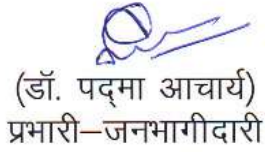 (डॉ. पद्मा आचार्य)
प्रभारी–जनभागीदारी